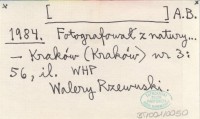 [ ] A.B.
1984. Fotografował z natury...
— Kraków (Kraków) nr 3:
56, il. WHP
Walery Rzewuski.